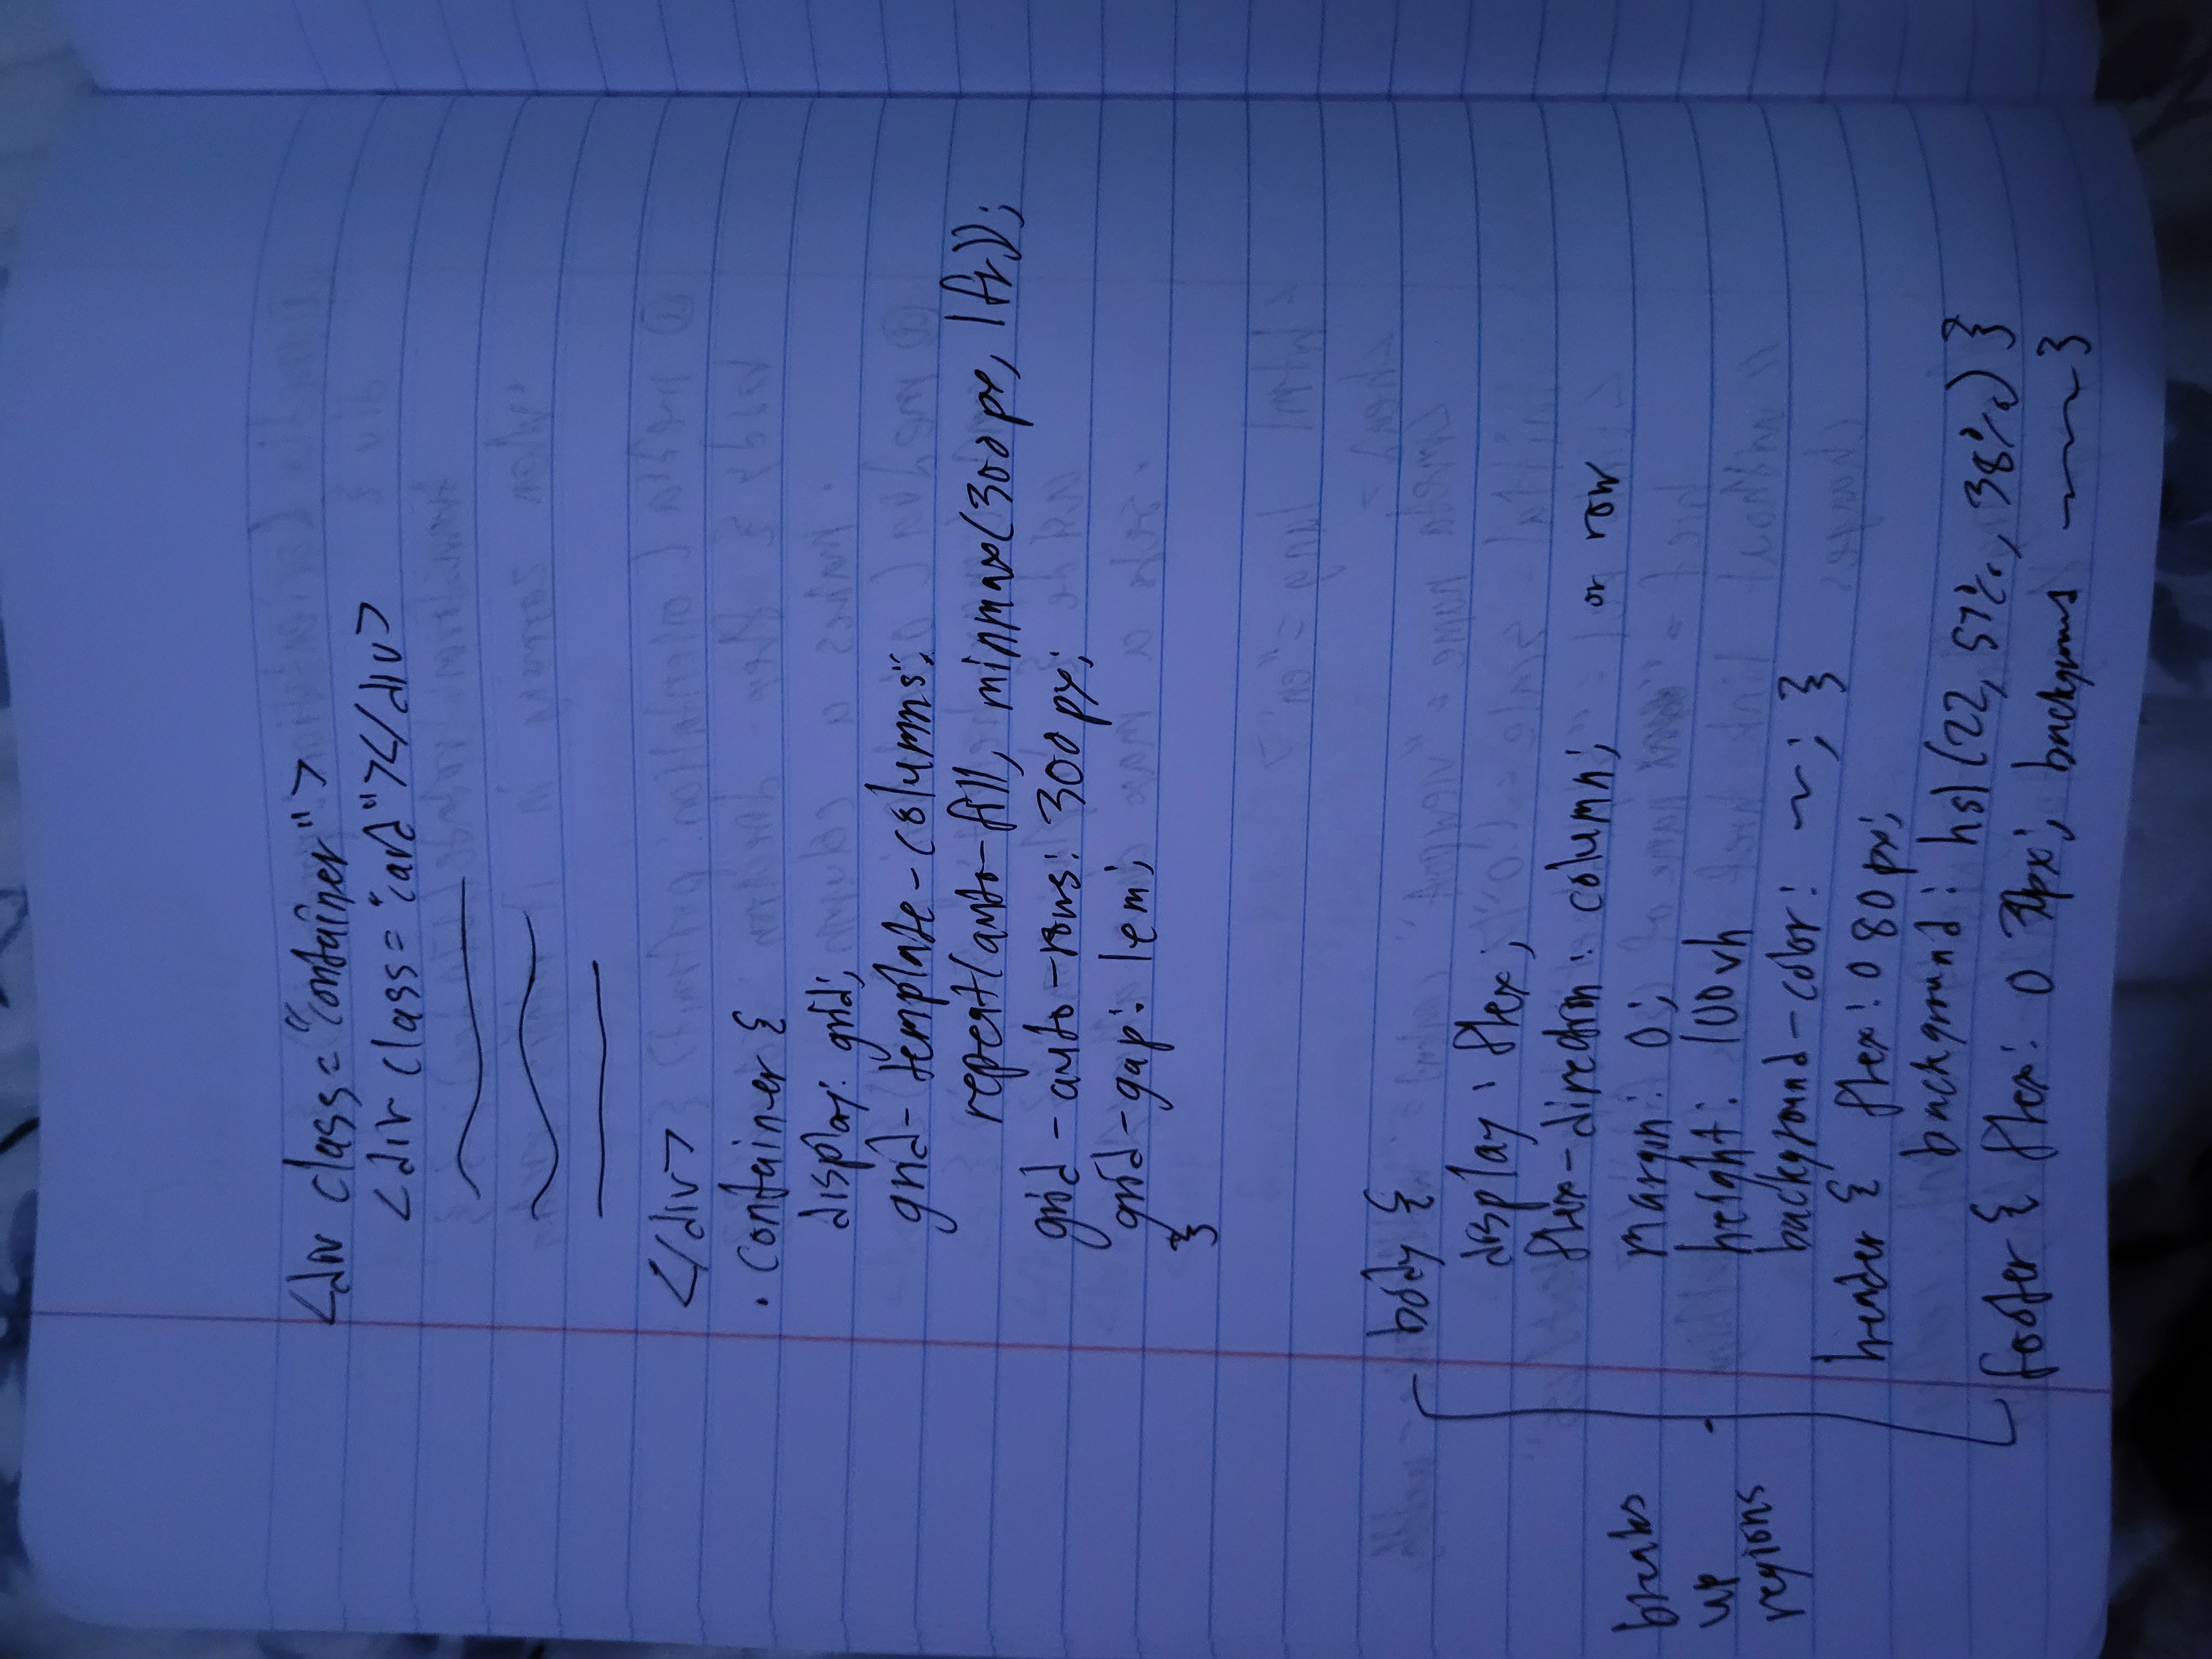 <div class="container">
<div class="card"></div>
</div>
.container {
display: grid;
grid-template-columns:
repeat(auto-fill, minmax(300px, 1fr));
grid-auto-rows: 300px;
grid-gap: 1em;
}
body {
display: flex;
flex-direction: column; or row
margin: 0;
height: 100vh
background-color: ~; }
header { flex: 0 80px;
background: hsl(22, 57%, 38%) }
footer { flex: 0 px; background }
breaks
up
regions